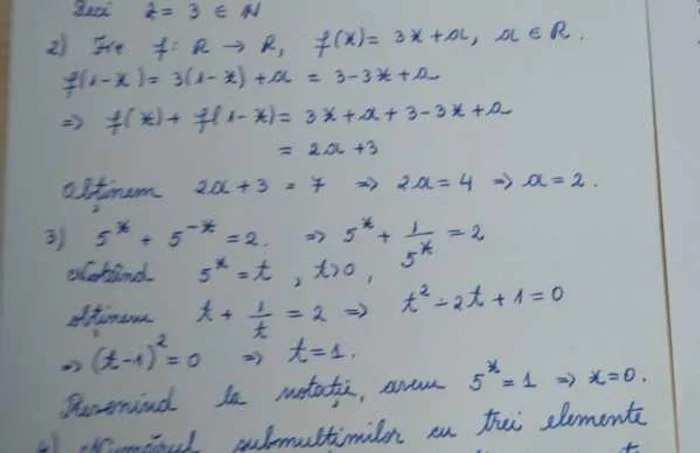 Deci z = 3 ∈ N
2) Fie f: R → R, f(x) = 3x + a, a ∈ R.
f(1-x) = 3(1-x) + a = 3-3x+a
=> f(x) + f(1-x) = 3x + a + 3 - 3x + a
= 2a + 3
Obținem 2a + 3 = 7 => 2a = 4 => a = 2.
3) 5^x + 5^-x = 2. => 5^x + 1/5^x = 2
Notând 5^x = t, t>0,
obținem t + 1/t = 2 => t^2 - 2t + 1 = 0
=> (t-1)^2 = 0 => t = 1.
Revenind la notație, avem 5^x = 1 => x = 0.
4) Numărul submulțimilor cu trei elemente